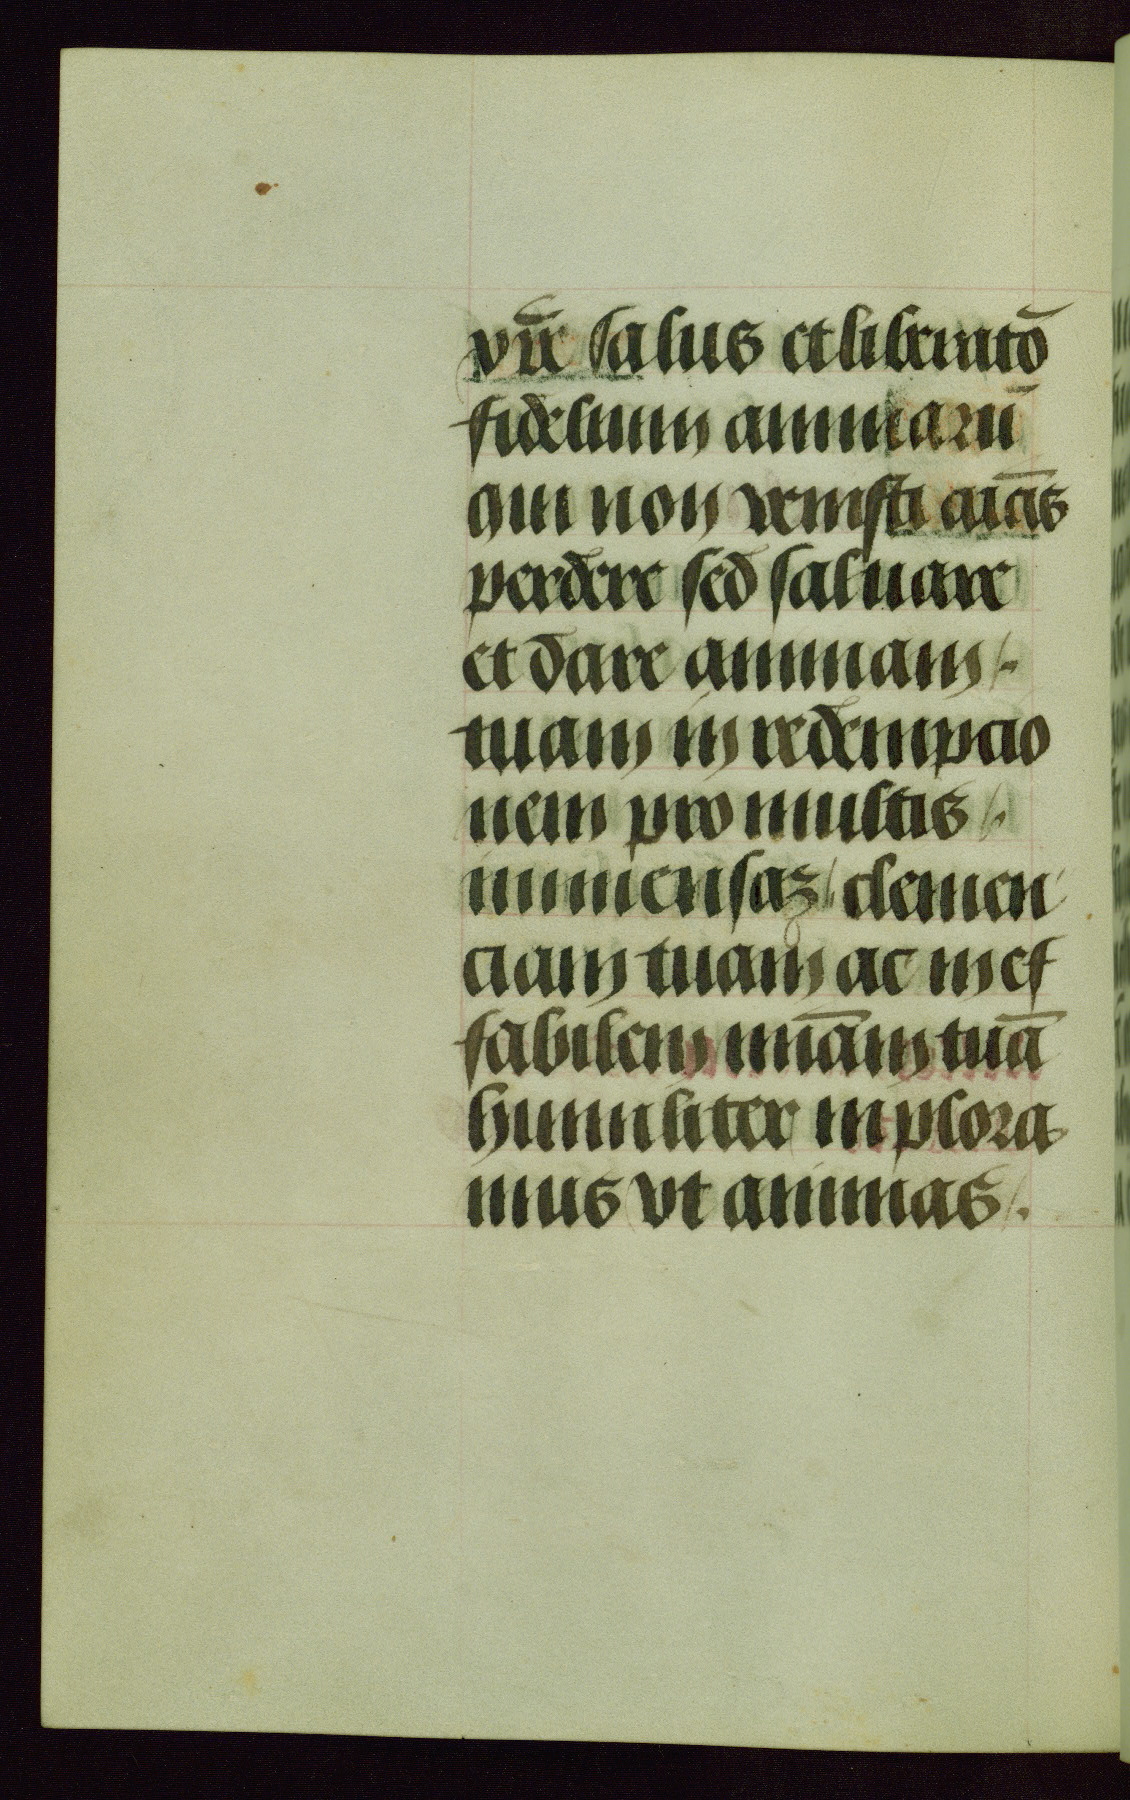 vite salus et liberato᷑
fidelium animarū
qui non venisti aīas
perdere sed saluare
et dare animam /.
tuam in redempcio
nem pro multis /.
inmensaʒ / clemen
ciam tuam ac inef
fabilem mīam tuā
humiliter inplora
mus vt animas /.